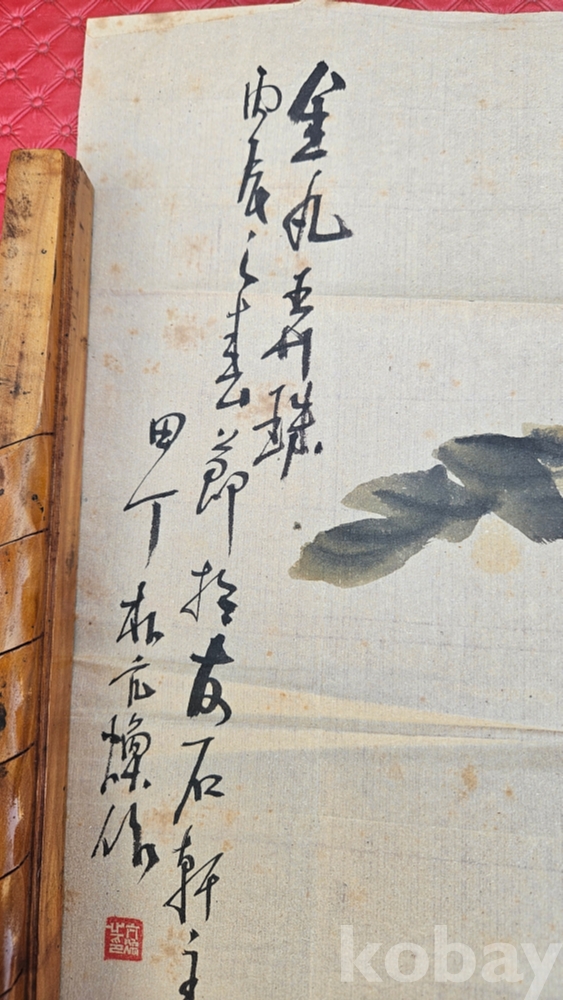 金丸弄珠
丙辰之春節於友石軒主
田丁 朴亢煥作
kobay